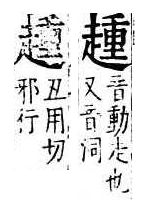 音動走也
又音洞
丑用切
邪行